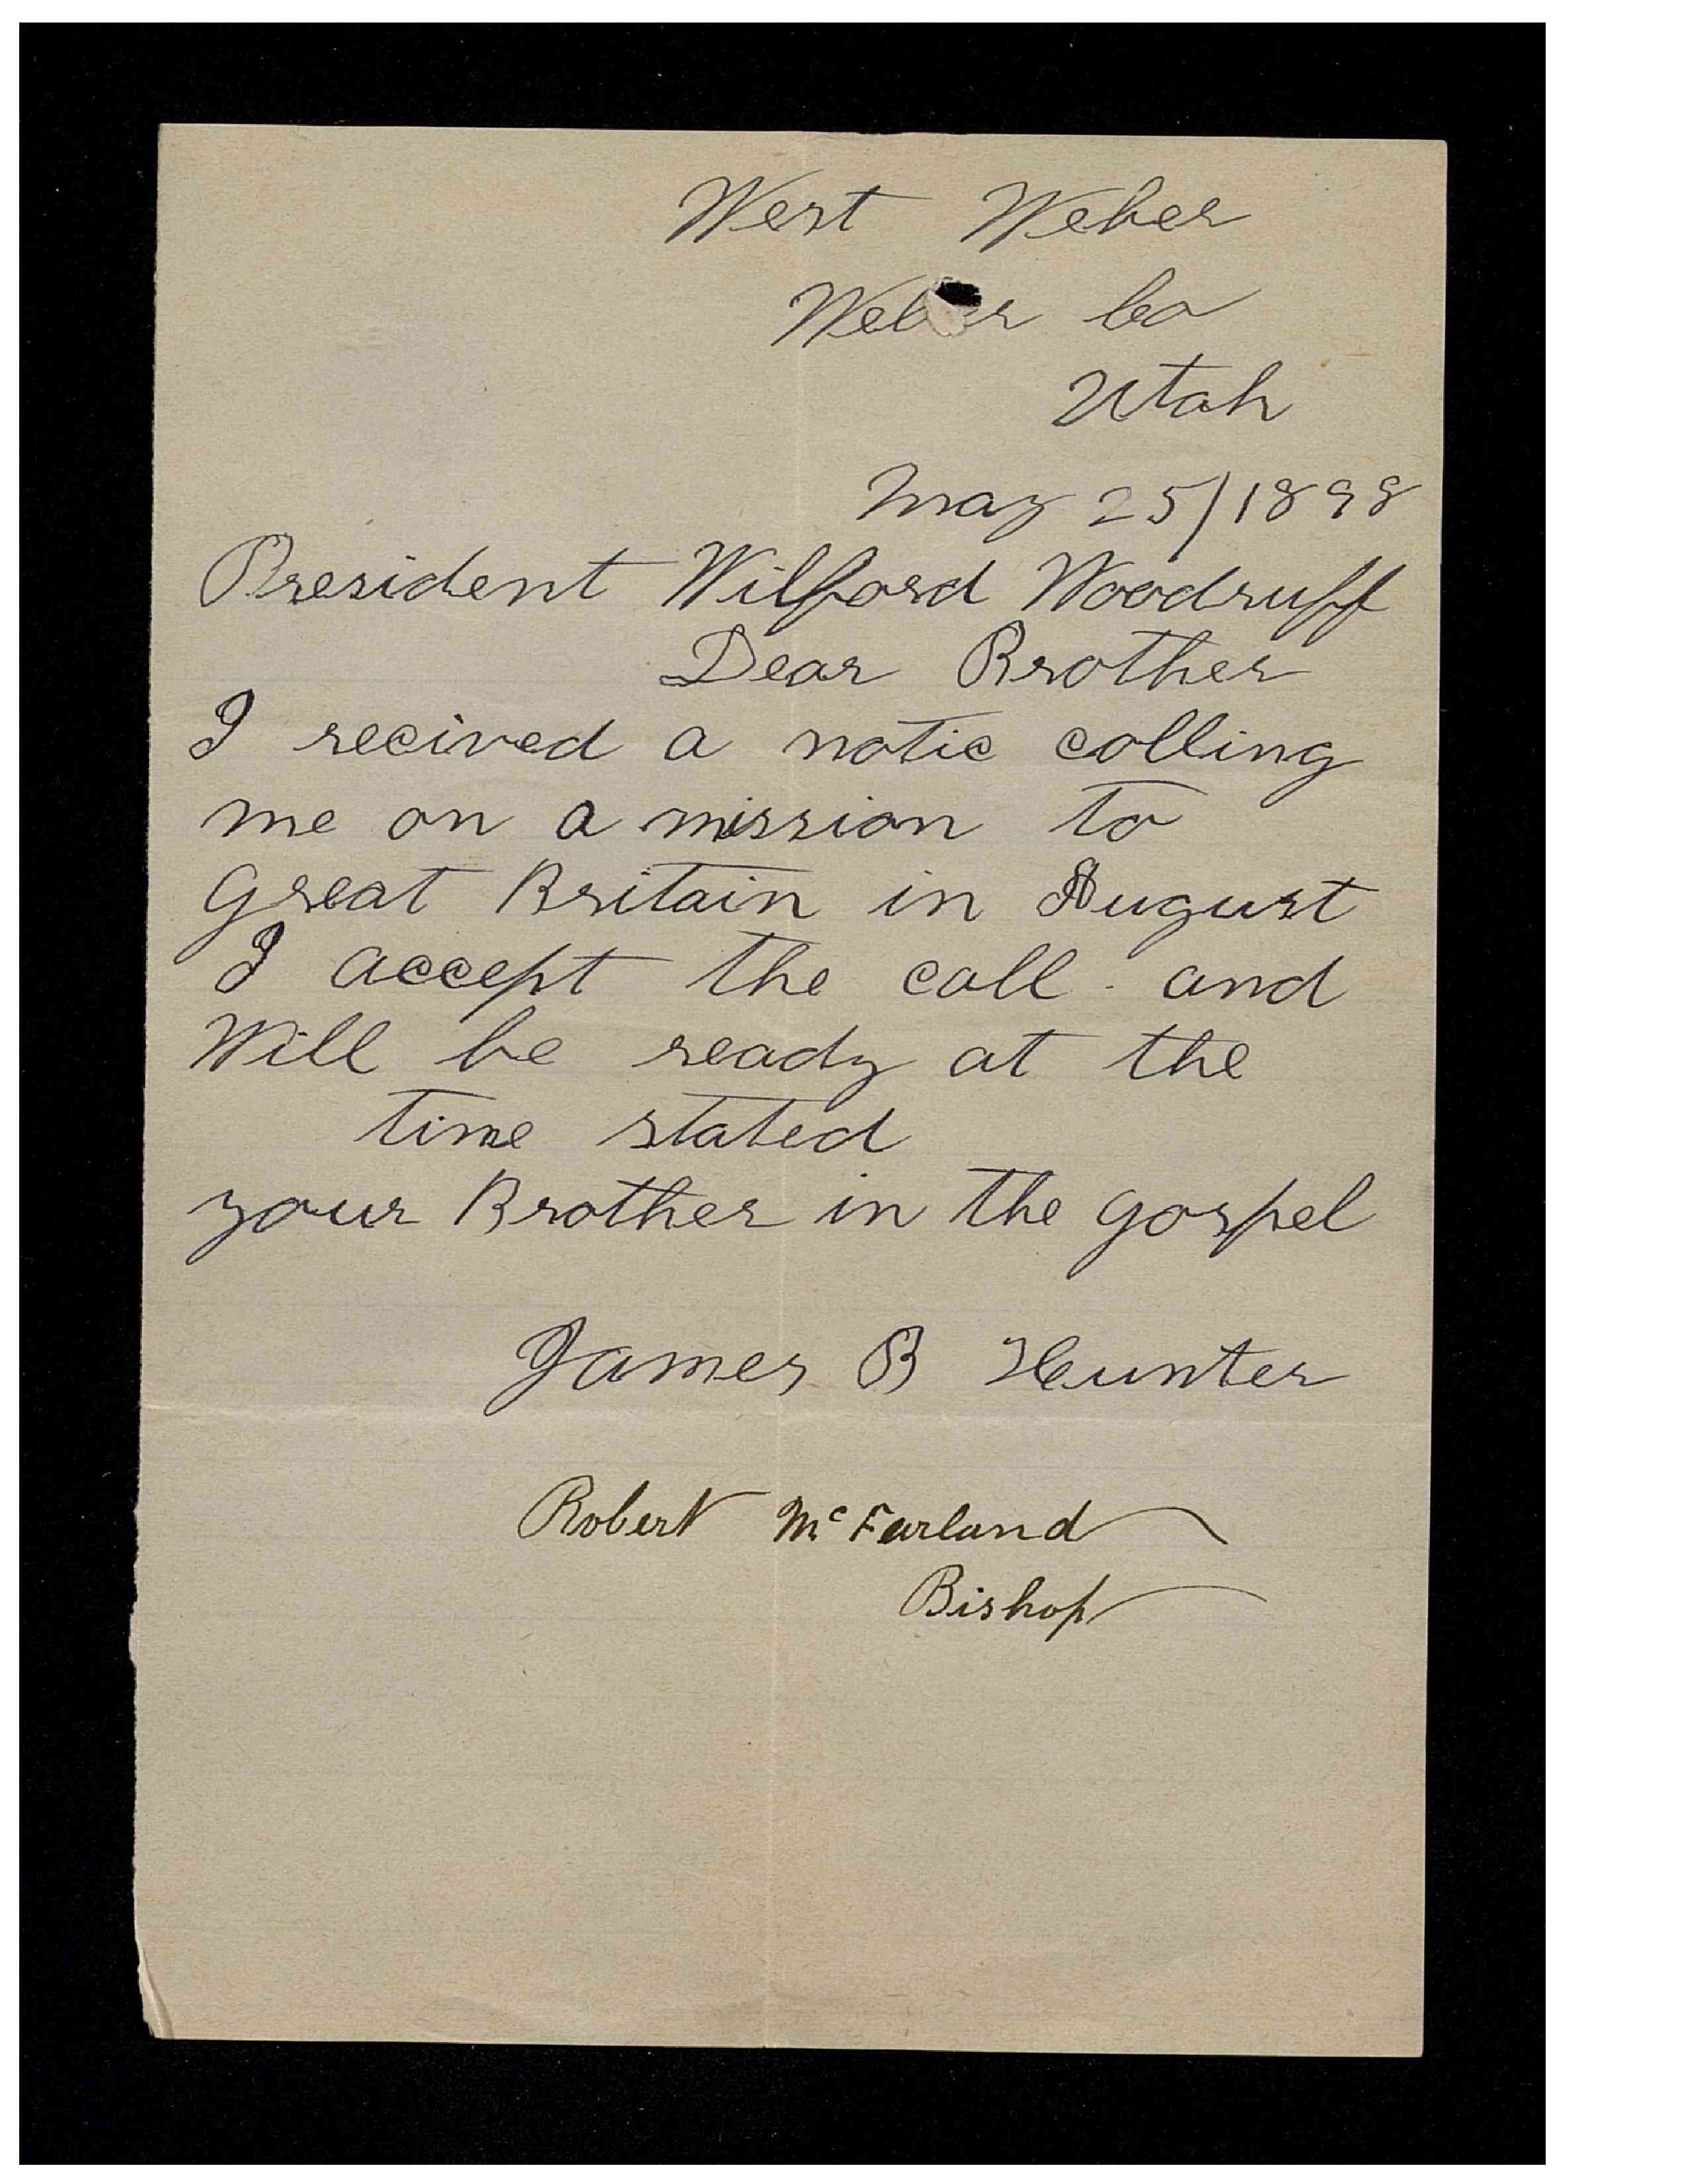 West Weber
Weber Co
Utah
May 25/1898
President Wilford Woodruff
Dear Brother
I recived a notic calling
me on a mission to
Great Britain in August
I accept the call and
Will be ready at the
time stated
your Brother in the gospel
James B Hunter
Robert McFarland
Bishop